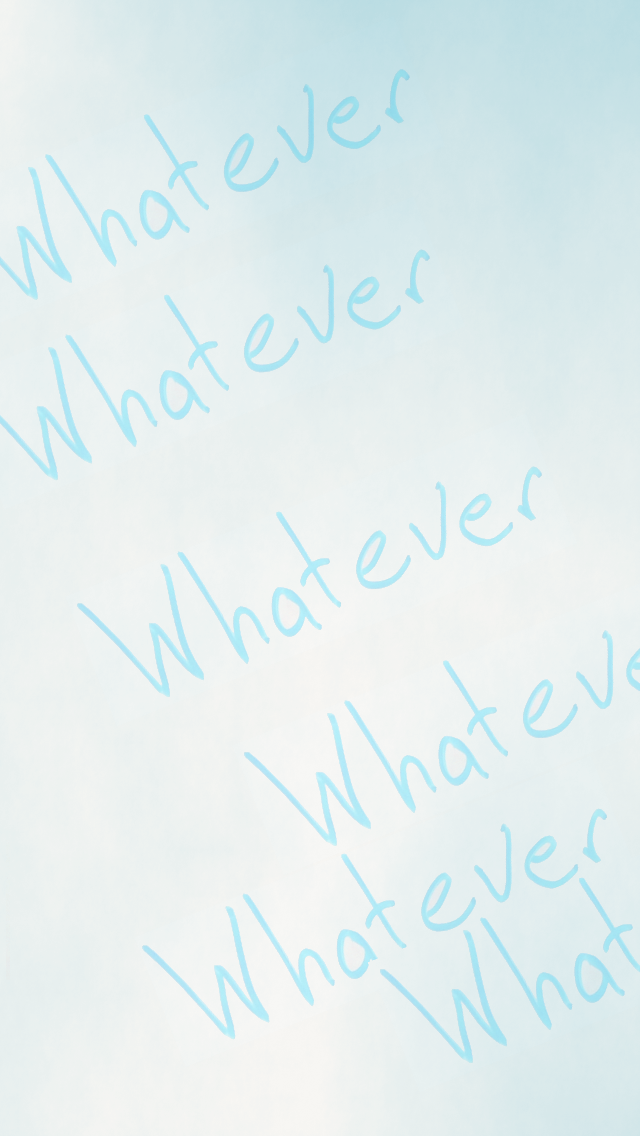 Whatever
Whatever
Whatever
Whateve
Whatever
What